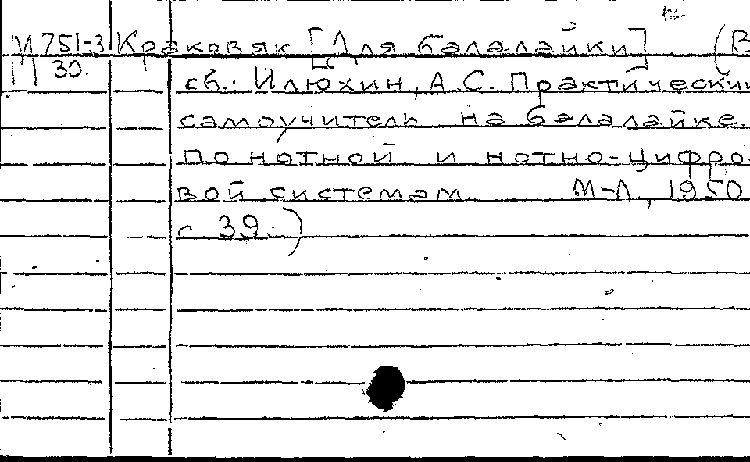 М 751-3 Краковяк [Для балалайки] (В
30. сб.: Илюхин, А.С. Практический
самоучитель на балалайке.
по нотной и нотно-цифро-
вой системам М-Л, 1950
с 39.)